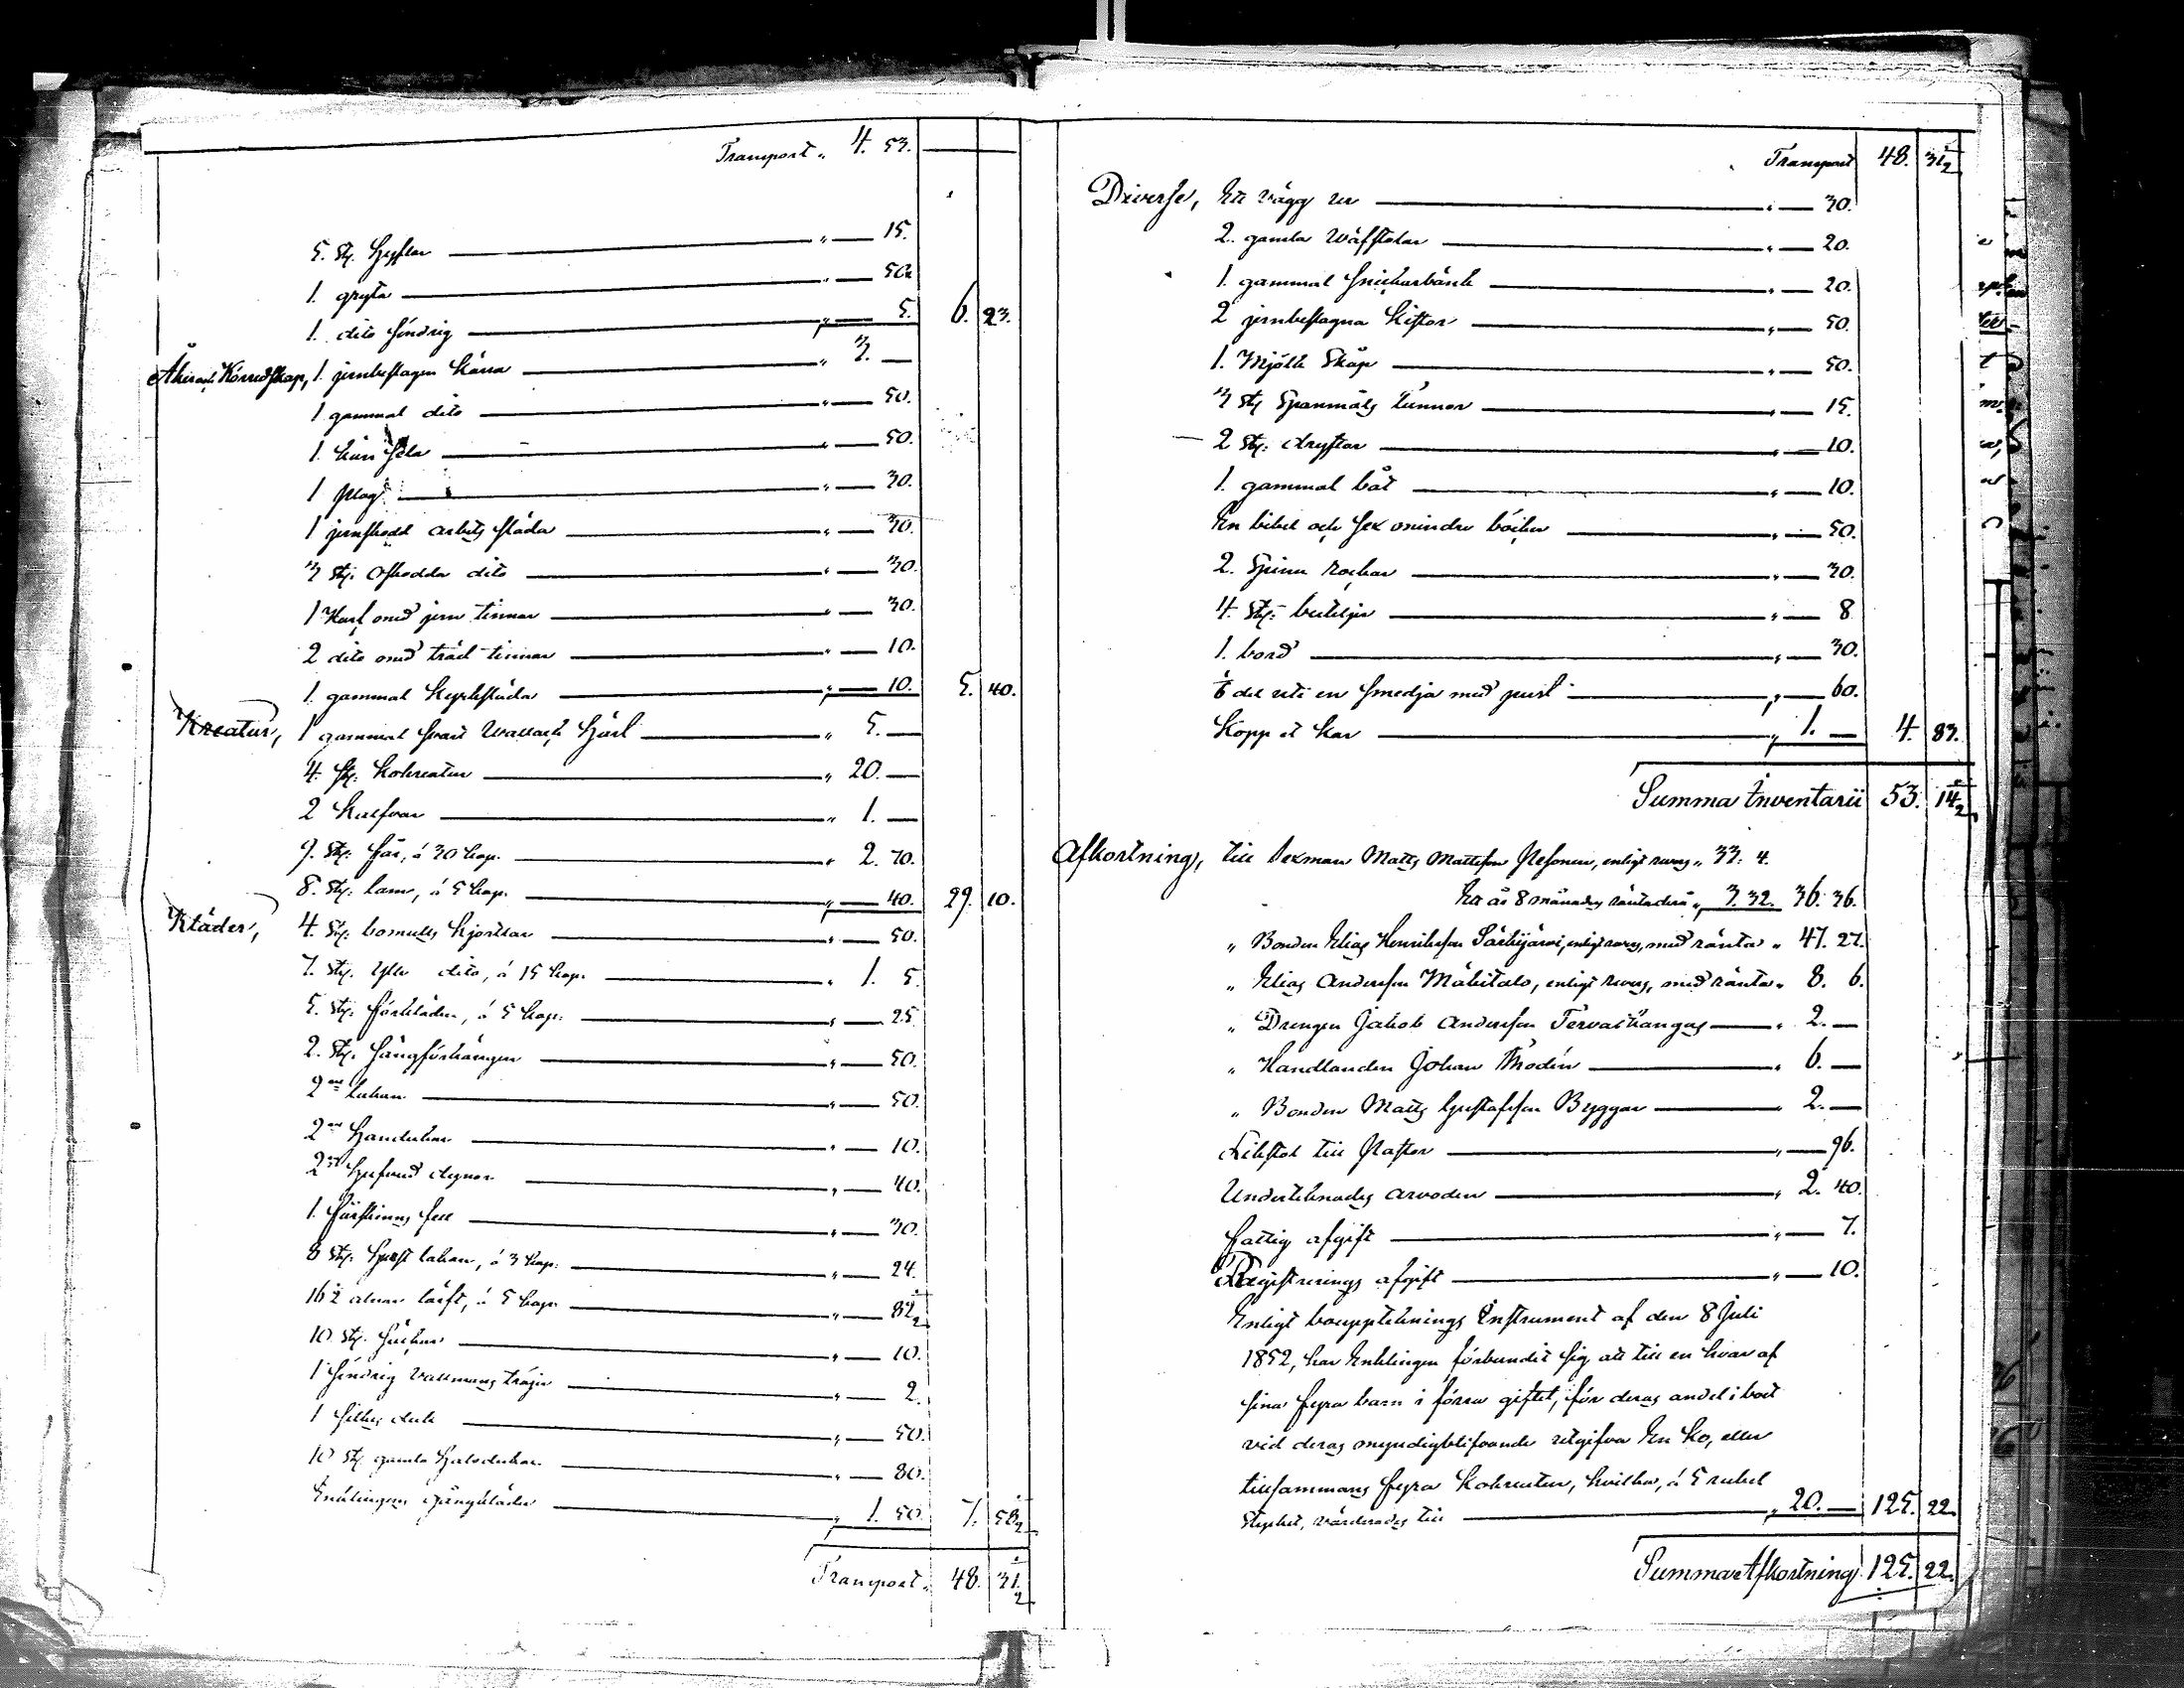 Transport „ 4. 53.
5. st. Hyflar „ — 15.
1. gryta „ — 50.
1. dito söndrig „ — 5. 6. 23.
Åker och Körredskap, 1. jernbeslagen kärra „ 3. —
1 gammal dito „ — 50.
1. kärr sela „ — 50.
1 plog „ — 30.
1 jernskodd arbets släda „ — 30.
3 st. oskodda dito „ — 30.
1 Harf med jern tinnar „ — 30.
2 dito med träd tinnar „ — 10.
1. gammal kyrksläda „ — 10. 5. 40.
Kreatur, 1 gammal svart Wallack häst „ 5. —
4. st. kokreatur „ 20. —
2 kalfvar „ 1. —
9. st. får, à 30 kop. „ 2. 70.
8. st. lam, à 5 kop. „ — 40. 29. 10.
Kläder, 4. st. bomulls kjortlar „ — 50.
7. st. ylle dito, à 15 kop. „ 1. 5.
5. st. förkläden, à 5 kop. „ — 25.
2. st. sängförhängen „ — 50.
2ne lakan „ — 50.
2ne handukar „ — 10.
2ne hufvud dynor „ — 40.
1. fårskinns fell „ — 30.
8 st. hurst lakan, à 3 kop. „ — 24.
16½ alnar lärft, à 5 kop. „ — 82½
10 st. säckar „ — 10.
1 söndrig vallmans tröja „ — 2.
1 silkes duk „ — 50.
10 st. gamla halsdukar „ — 80.
Enklingens gångkläder „ 1. 50. 7. 58½
Transport „ 48. 31½
Transport 48. 31½
Diverse, Ett vägg ur „ — 30.
2. gamla Wäfstolar „ — 20.
1. gammal snickarbänk „ — 20.
2 jernbeslagna kistor „ — 50.
1. Mjölk Skåp „ — 50.
3 st Spanmåls Tunnor „ — 15.
2 st. dryftar „ — 10.
1. gammal båt „ — 10.
En bibel och sex mindre böcker „ — 50.
2. Spinn rockar „ — 30.
4. st. buteljer „ — 8
1. bord „ — 30.
⅙ del uti en smedja med pust „ — 60.
Kopp et kar „ 1. — 4. 83.
Summa Inventarii 53. 14½
Afkortning, till Sexman Matts Mattsson Pesonen, enligt revers „ 33. 4.
Ett år 8 månaders ränta derå „ 3. 32. 36. 36.
„ Bonden Elias Henriksson Särkijärvi, enligt revers, med ränta „ 47. 27.
„ Elias Andersson Mäkitalo, enligt revers, med ränta „ 8. 6.
„ Drengen Jakob Andersson Tervakangas „ 2. —
„ Handlanden Johan Thodén „ 6. —
„ Bonden Matts Gustafsson Byggar „ 2. —
Likstol till Pastor „ — 96.
Undertecknades arvoden „ 2. 40.
Fattig afgift „ — 7.
Registrerings afgift „ — 10.
Enligt bouppteknings Instrument af den 8 Juli
1852, har Enklingen förbundit sig att till en hvar af
sina fyra barn i förra giftet, för deras andel i boet
vid deras myndigblifvande utgifva En ko, eller
tillsammans fyra kokreatur, hvilka, à 5 rubel
stycket, värderades till „ 20. — 125. 22.
Summa Afkortning 125. 22.